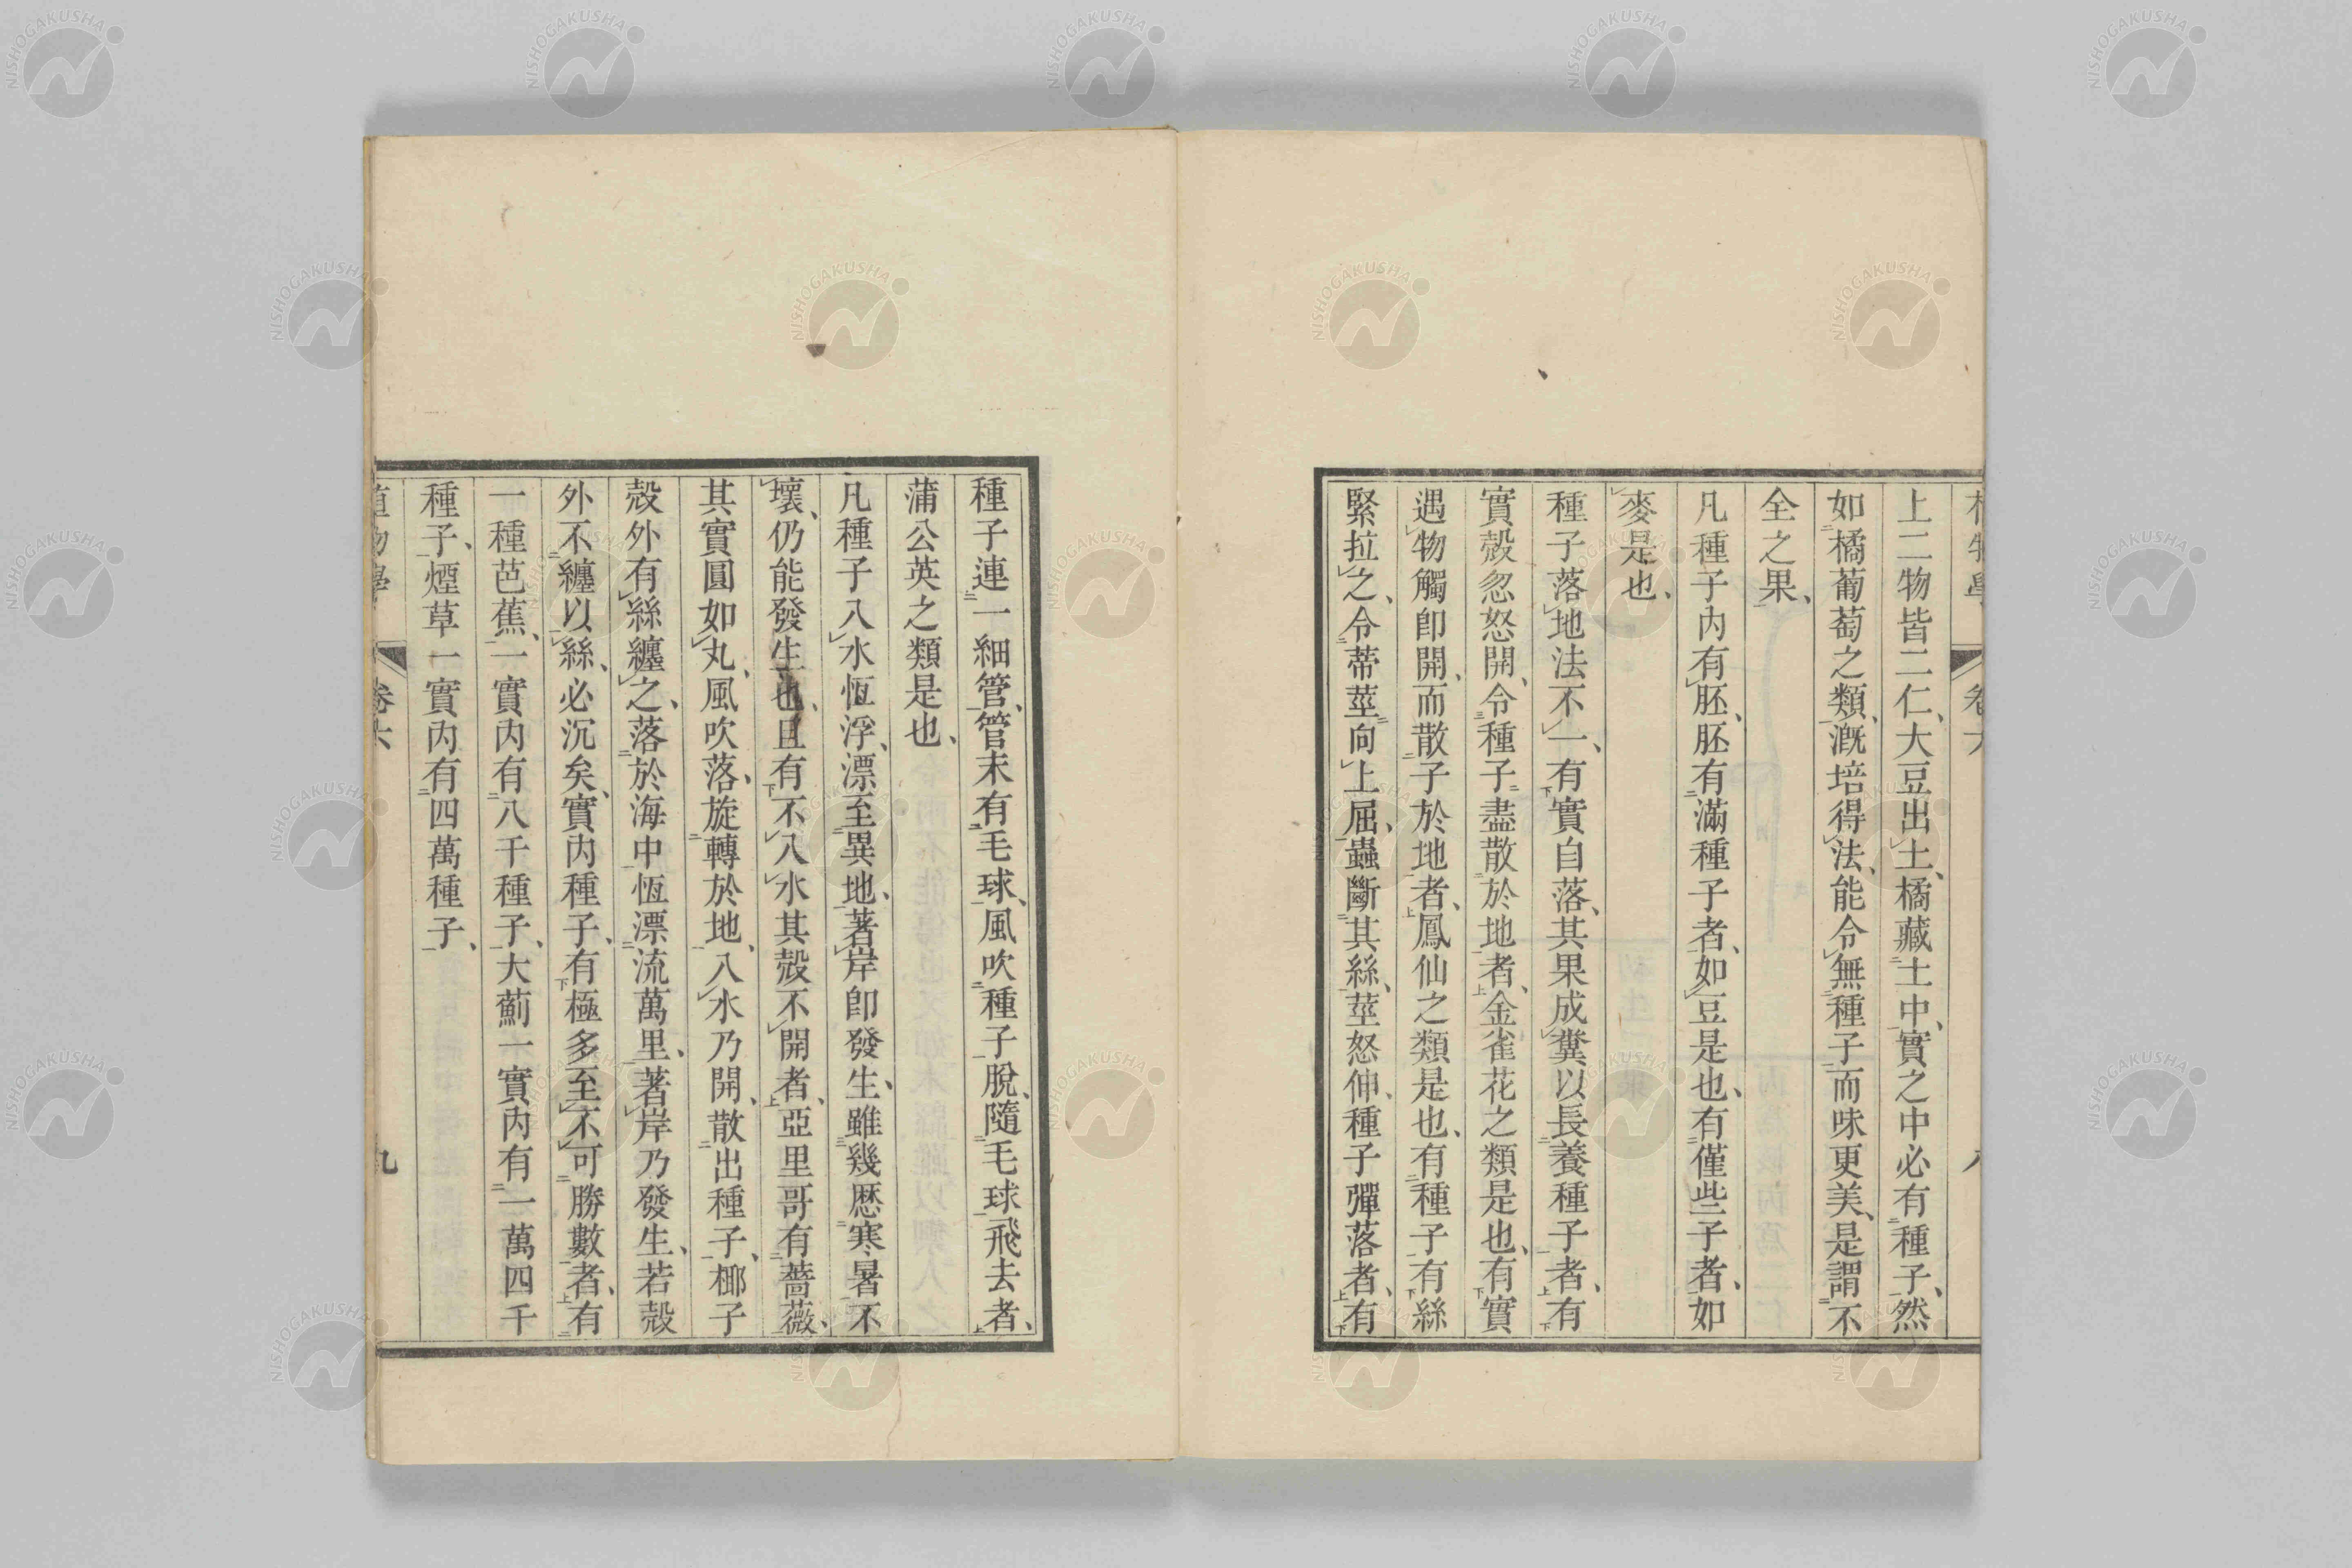 上二物皆二仁、大豆出土、橘藏土中、實之中必有種子、然
如橘葡萄之類、漑培得法、能令無種子而味更美、是謂不
全之果、
凡種子內有胚、胚有滿種子者、如豆是也、有僅些子者、如
麥是也、
種子落地法不一、有實自落、其果成糞以長養種子者、有
實殼忽怒開、令種子盡散於地者、金雀花之類是也、有實
遇物觸卽開、而散子於地者、鳳仙之類是也、有種子有絲
緊拉之、令蒂莖向上屈、蟲斷其絲、莖怒伸、種子彈落者、有
種子連一細管、管末有毛球、風吹種子脫、隨毛球飛去者、
蒲公英之類是也、
凡種子入水恆浮、漂至異地、著岸卽發生、雖幾歷寒暑不
壞、仍能發生也、且有不入水其殼不開者、亞里哥有薔薇、
其實圓如丸、風吹落、旋轉於地、入水乃開、散出種子、椰子
殼外有絲纏之、落於海中恆漂流萬里、著岸乃發生、若殼
外不纏以絲、必沉矣、實內種子、有極多至不可勝數者、有
一種芭蕉、一實內有八千種子、大薊一實內有一萬四千
種子、煙草一實內有四萬種子、
植物學 卷六 九